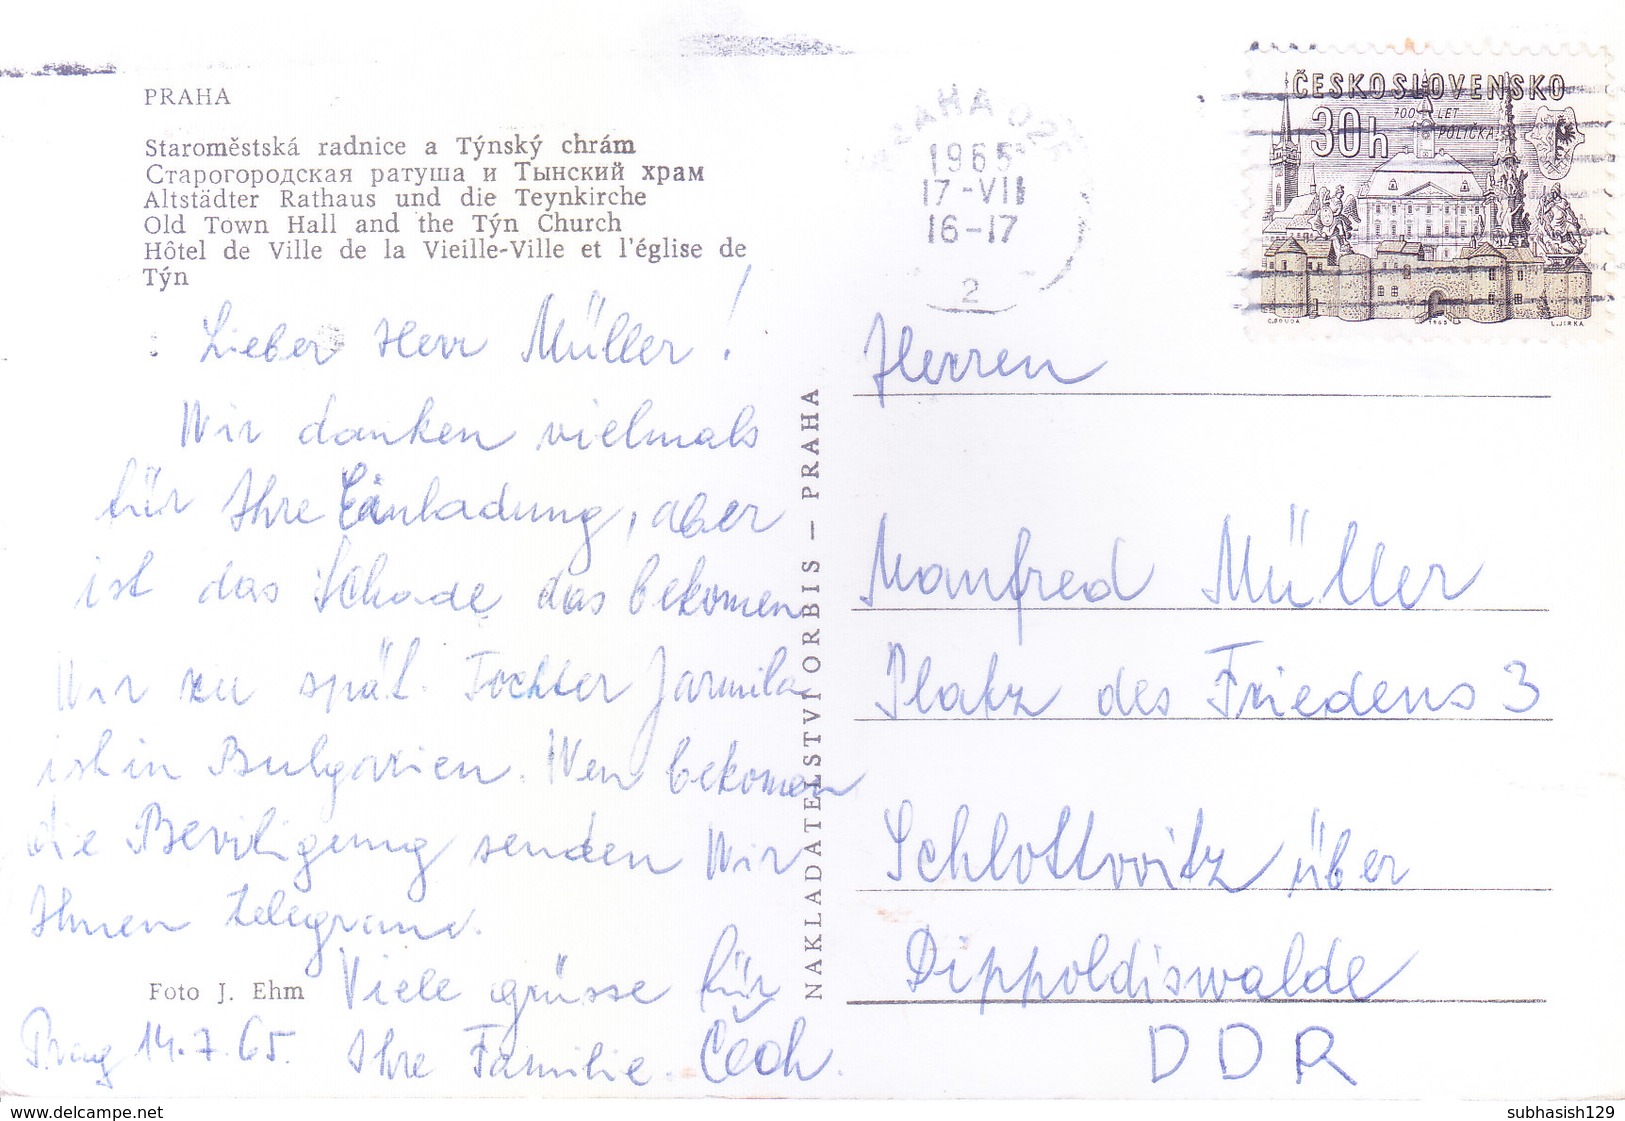 PRAHA
Staroměstská radnice a Týnský chrám
Старогородская ратуша и Тынский храм
Altstädter Rathaus und die Teynkirche
Old Town Hall and the Týn Church
Hôtel de Ville de la Vieille-Ville et l'église de
Týn
Lieber Herr Müller!
Wir danken vielmals
für Ihre Einladung, aber
ist das Schade das bekomen
Wir zu spät. Tochter Jarmila
ist in Bulgarien. Wen bekomen
die Beviligung senden Wir
Ihnen telegram.
Viele grüsse für
Ihre Familie. Čech.
Prag 14.7.65.
Foto J. Ehm
NAKLADATELSTVÍ ORBIS – PRAHA
PRAHA 025
1965
17-VII
16-17
2
ČESKOSLOVENSKO
30h
700 LET
POLIČKA
C. BOUDA
1965
L. JIRKA
Herren
Manfred Müller
Platz des Friedens 3
Schlottwitz über
Dippoldiswalde
DDR
delcampe.net
subhasish129